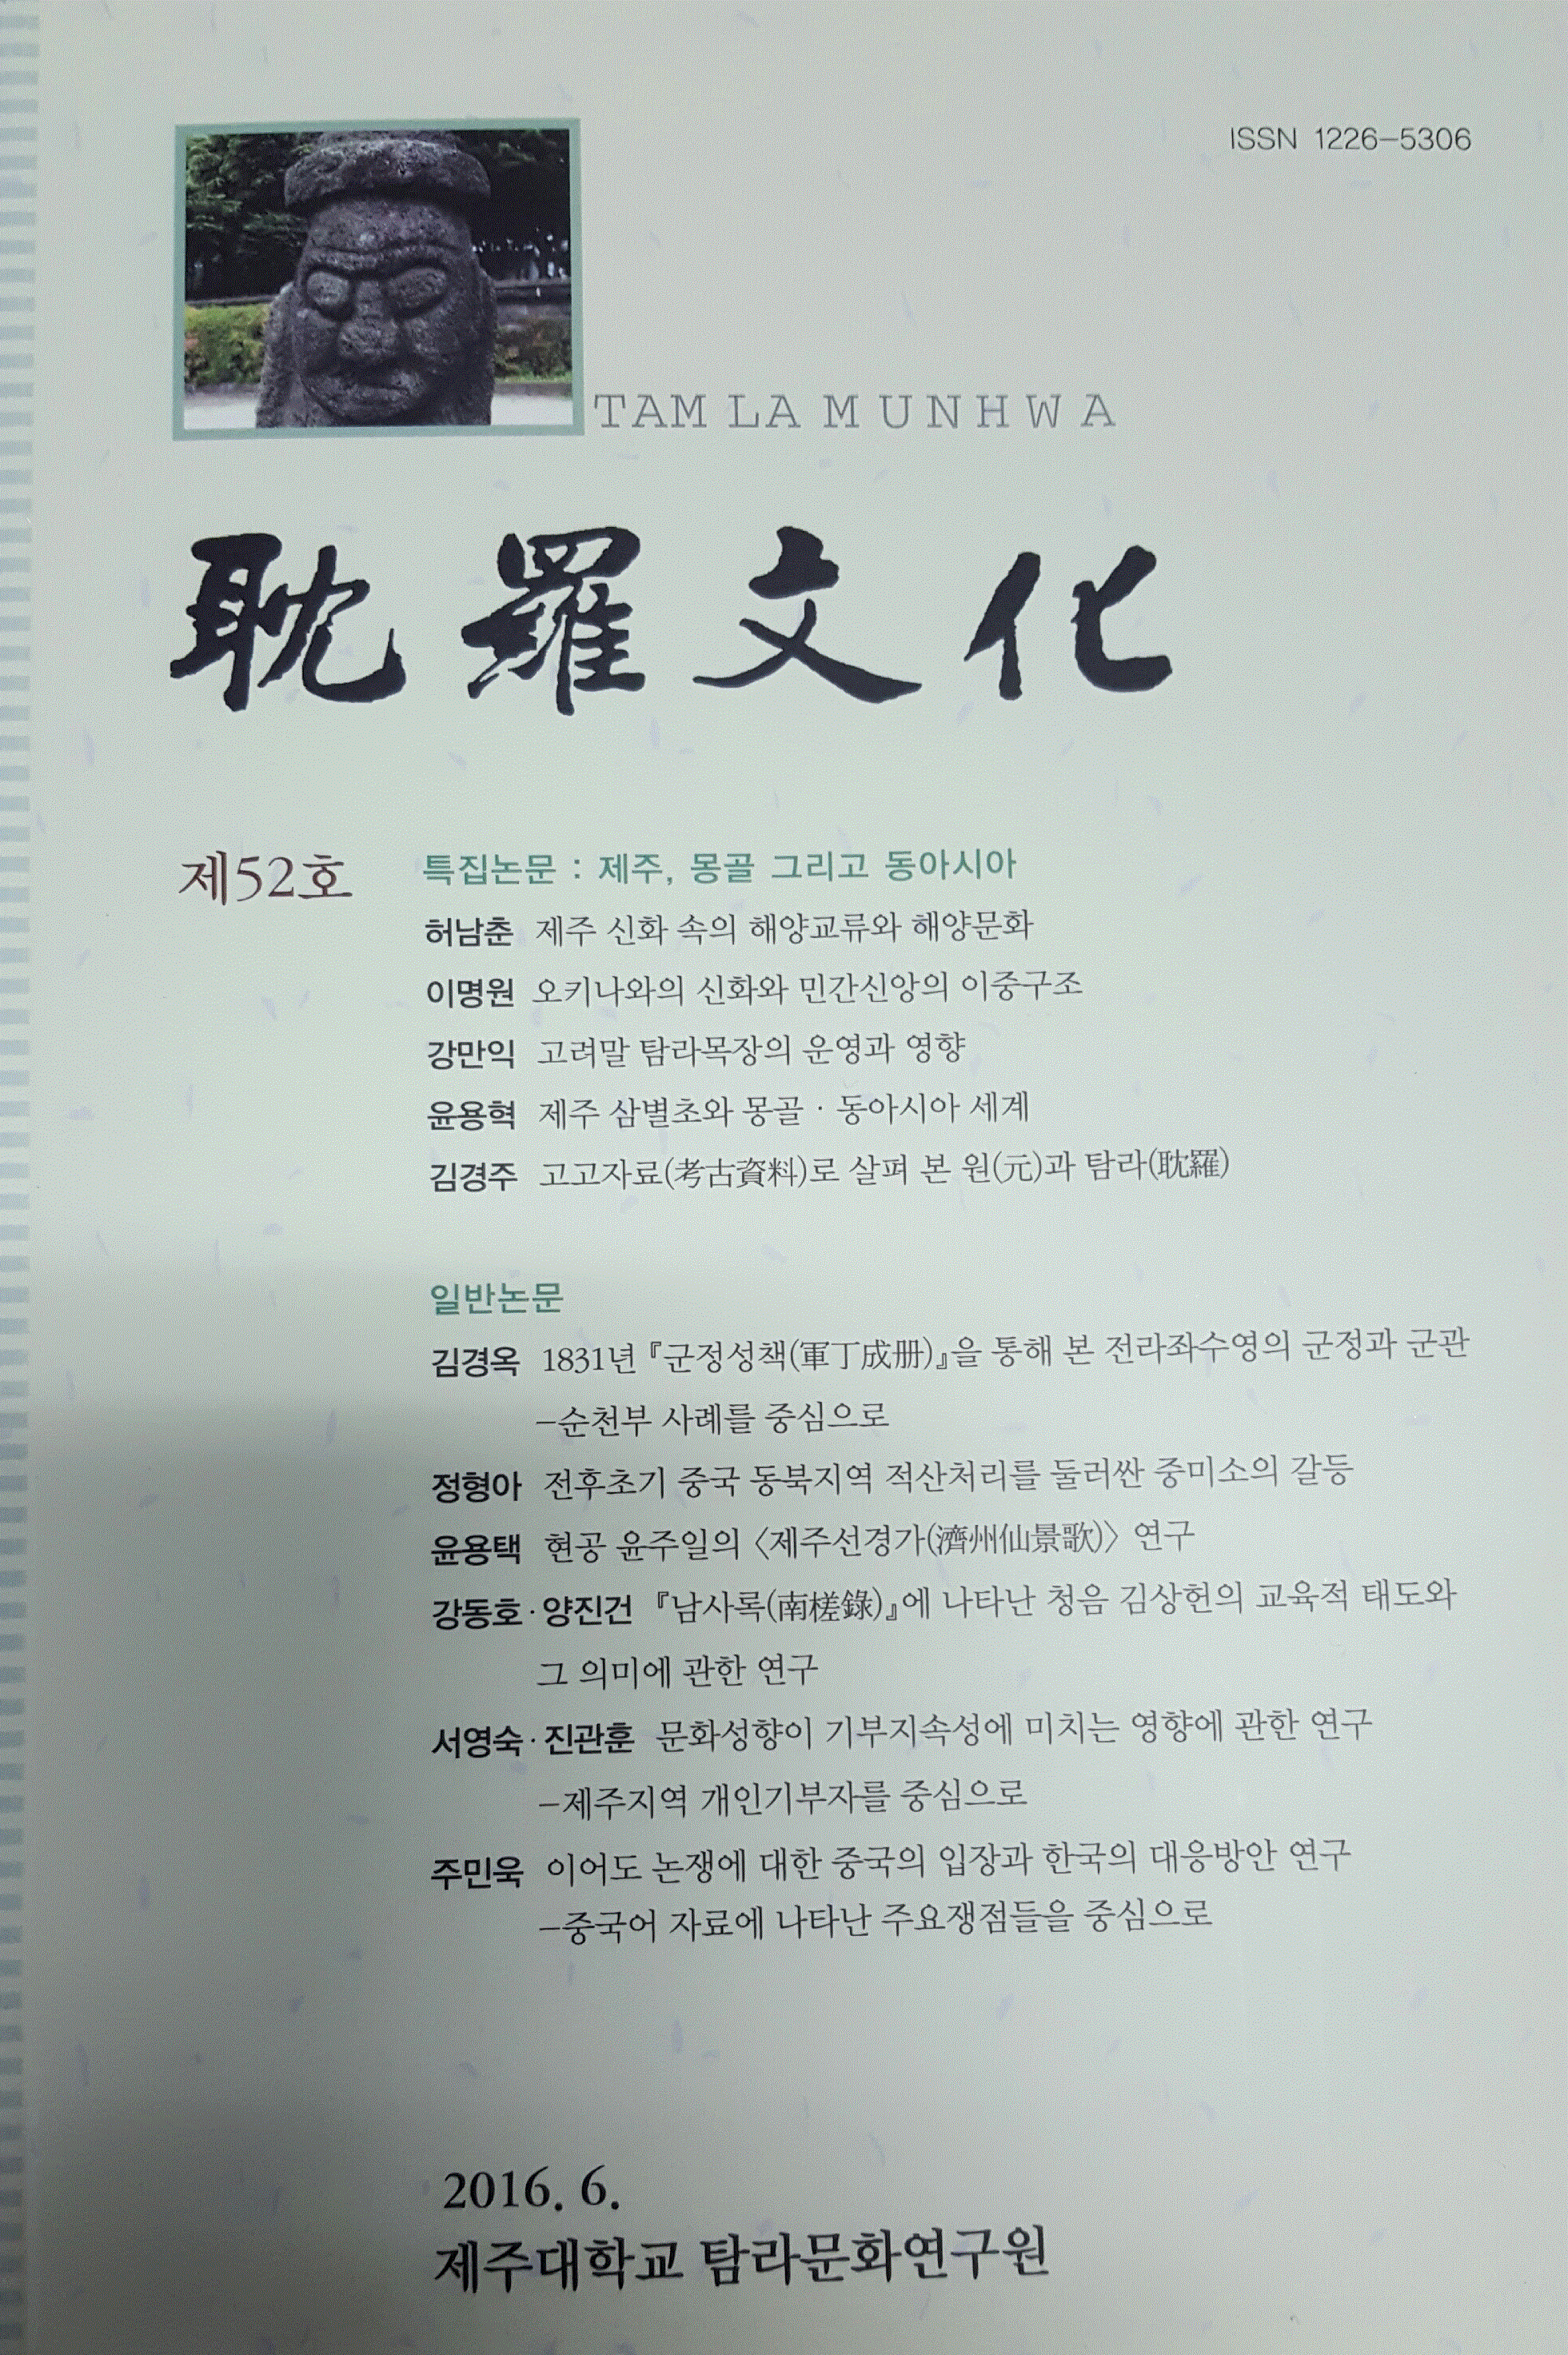 ISSN 1226-5306
TAMLA MUNHWA
耽羅文化
제52호
특집논문 : 제주, 몽골 그리고 동아시아
허남춘 제주 신화 속의 해양교류와 해양문화
이명원 오키나와의 신화와 민간신앙의 이중구조
강만익 고려말 탐라목장의 운영과 영향
윤용혁 제주 삼별초와 몽골·동아시아 세계
김경주 고고자료(考古資料)로 살펴 본 원(元)과 탐라(耽羅)
일반논문
김경옥 1831년 『군정성책(軍丁成册)』을 통해 본 전라좌수영의 군정과 군관
-순천부 사례를 중심으로
정형아 전후초기 중국 동북지역 적산처리를 둘러싼 중미소의 갈등
윤용택 현공 윤주일의 〈제주선경가(濟州仙景歌)〉 연구
강동호·양진건 『남사록(南槎錄)』에 나타난 청음 김상헌의 교육적 태도와
그 의미에 관한 연구
서영숙·진관훈 문화성향이 기부지속성에 미치는 영향에 관한 연구
-제주지역 개인기부자를 중심으로
주민욱 이어도 논쟁에 대한 중국의 입장과 한국의 대응방안 연구
-중국어 자료에 나타난 주요쟁점들을 중심으로
2016. 6.
제주대학교 탐라문화연구원